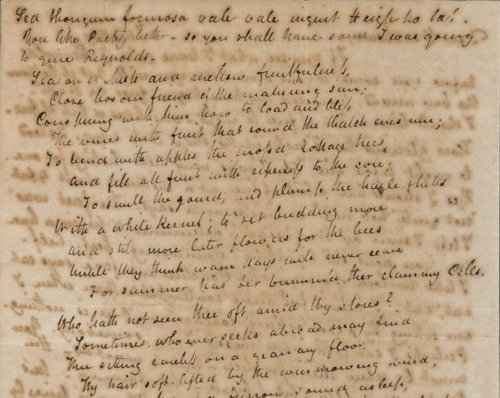 Sed thongum formosa vale vale inquit Heigh ho la!
You like Poetry better - so you shall have some I was going
to give Reynolds.
Season of Mists and mellow fruitfulness,
Close bosom friend of the maturing sun;
Conspiring with him how to load and bless
The vines with fruit that round the thatch eves run;
To bend with apples the moss'd cottage trees
and fill all fruit with ripeness to the core;
To swell the gourd, and plump the hazle shells
With a white kernel; to set budding more
and still more later flowers for the bees
Untill they think warm days will never cease
For summer has o'er brimm'd their clammy Cells.
Who hath not seen thee oft amid thy stores?
Sometimes, whoever seeks abroad may find
Thee sitting careless on a granary floor
Thy hair soft lifted by the winnowing wind;
furrow sound asleep,